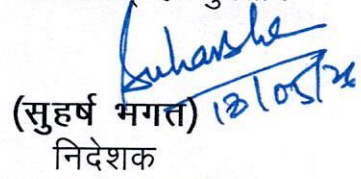 Suharsha
(सुहर्ष भगत) 18/05/26
निदेशक